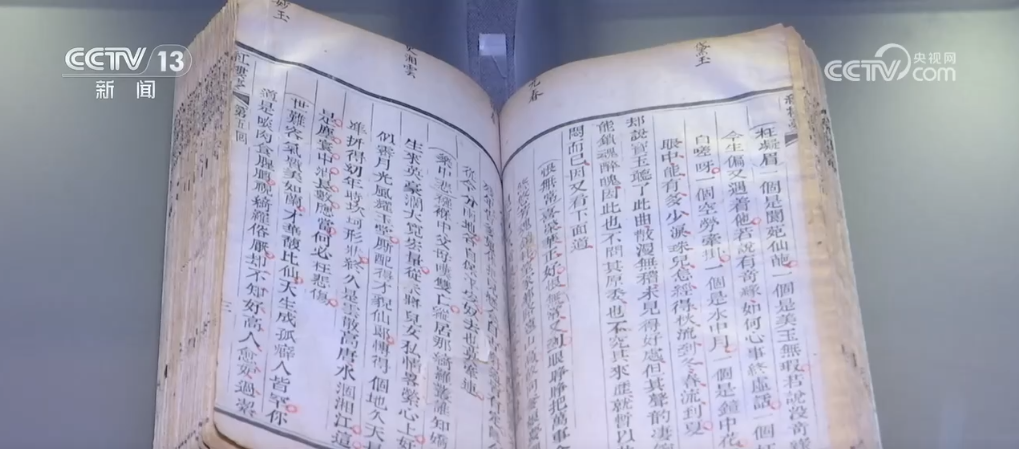 CCTV 13
新闻
CCTV 央视网
com
黛玉
元春
湘雲
妙玉
枉凝眉一個是閬苑仙葩一個是美玉無瑕若說沒奇緣
今生偏又遇着他若說有奇緣如何心事終虛話一個枉
自嗟呀一個空勞牽掛一個是水中月一個是鏡中花
眼中能有多少淚珠兒怎經得秋流到冬春流到夏
却說寶玉聽了此曲散漫無稽未見得好處但其聲韵凄
能銷魂醉魄因此也不問其原委也不究其來歷就暫以
悶而已因又看下面道
恨無常喜榮華正好恨無常又到眼睜睜把萬事
樂中悲襁褓中父母嘆雙亡縱居那綺羅叢誰知嬌
生來英豪濶大寬宏量從未將兒女私情畧縈心上好
似霽月光風耀玉堂厮配得才貌仙郎博得個地久天長
準折得幼年時坎坷形狀終久是雲散高唐水涸湘江這
是塵寰中消長數應當何必枉悲傷
世難容氣質美如蘭才華馥比仙天生成孤癖人皆罕你
道是啖肉食腥膻視綺羅俗厭却不知好高人愈妒過潔
紅樓夢 第五回 三